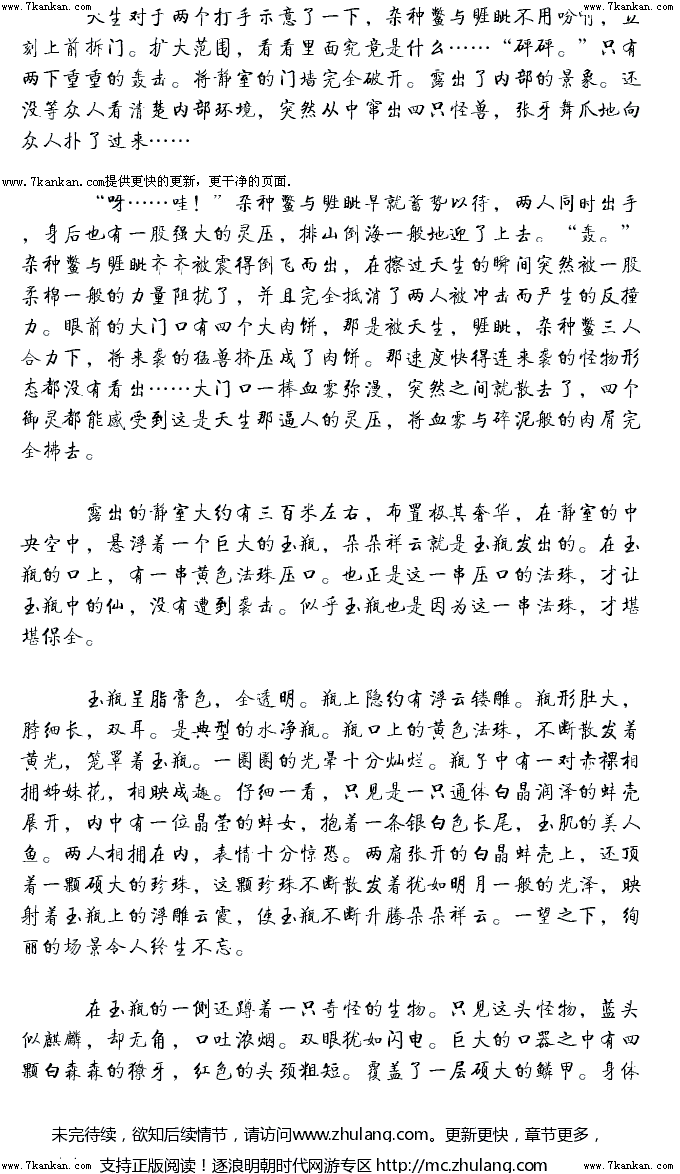 www.7kankan.com www.7kankan.com www.7kankan.com
天生对于两个打手示意了一下，杂种鳖与睚眦不用吩咐，立
刻上前拆门。扩大范围，看看里面究竟是什么……“砰砰。”只有
两下重重的轰击。将静室的门墙完全破开。露出了内部的景象。还
没等众人看清楚内部环境，突然从中窜出四只怪兽，张牙舞爪地向
众人扑了过来……
www.7kankan.com提供更快的更新，更干净的页面.
“呀……哇！”杂种鳖与睚眦早就蓄势以待，两人同时出手
，身后也有一股强大的灵压，排山倒海一般地迎了上去。“轰。”
杂种鳖与睚眦齐齐被震得倒飞而出，在擦过天生的瞬间突然被一股
柔棉一般的力量阻扰了，并且完全抵消了两人被冲击而产生的反撞
力。眼前的大门口有四个大肉饼，那是被天生，睚眦，杂种鳖三人
合力下，将来袭的猛兽挤压成了肉饼。那速度快得连来袭的怪物形
态都没有看出……大门口一捧血雾弥漫，突然之间就散去了，四个
御灵都能感受到这是天生那逼人的灵压，将血雾与碎泥般的肉屑完
全拂去。
露出的静室大约有三百米左右，布置极其奢华，在静室的中
央空中，悬浮着一个巨大的玉瓶，朵朵祥云就是玉瓶发出的。在玉
瓶的口上，有一串黄色法珠压口。也正是这一串压口的法珠，才让
玉瓶中的仙，没有遭到袭击。似乎玉瓶也是因为这一串法珠，才堪
堪保全。
玉瓶呈脂膏色，全透明。瓶上隐约有浮云镂雕。瓶形肚大，
脖细长，双耳。是典型的水净瓶。瓶口上的黄色法珠，不断散发着
黄光，笼罩着玉瓶。一圈圈的光晕十分灿烂。瓶子中有一对赤裸相
拥姊妹花，相映成趣。仔细一看，只见是一只通体白晶润泽的蚌壳
展开，内中有一位晶莹的蚌女，抱着一条银白色长尾，玉肌的美人
鱼。两人相拥在内，表情十分惊恐。两扇张开的白晶蚌壳上，还顶
着一颗硕大的珍珠，这颗珍珠不断散发着犹如明月一般的光泽，映
射着玉瓶上的浮雕云霞，使玉瓶不断升腾朵朵祥云。一望之下，绚
丽的场景令人终生不忘。
在玉瓶的一侧还蹲着一只奇怪的生物。只见这头怪物，蓝头
似麒麟，却无角，口吐浓烟。双眼犹如闪电。巨大的口器之中有四
颗白森森的獠牙，红色的头颈粗短。覆盖了一层硕大的鳞甲。身体
未完待续，欲知后续情节，请访问www.zhulang.com。更新更快，章节更多，
支持正版阅读！逐浪明朝时代网游专区 http://mc.zhulang.com
www.7kankan.com www.7kankan.com